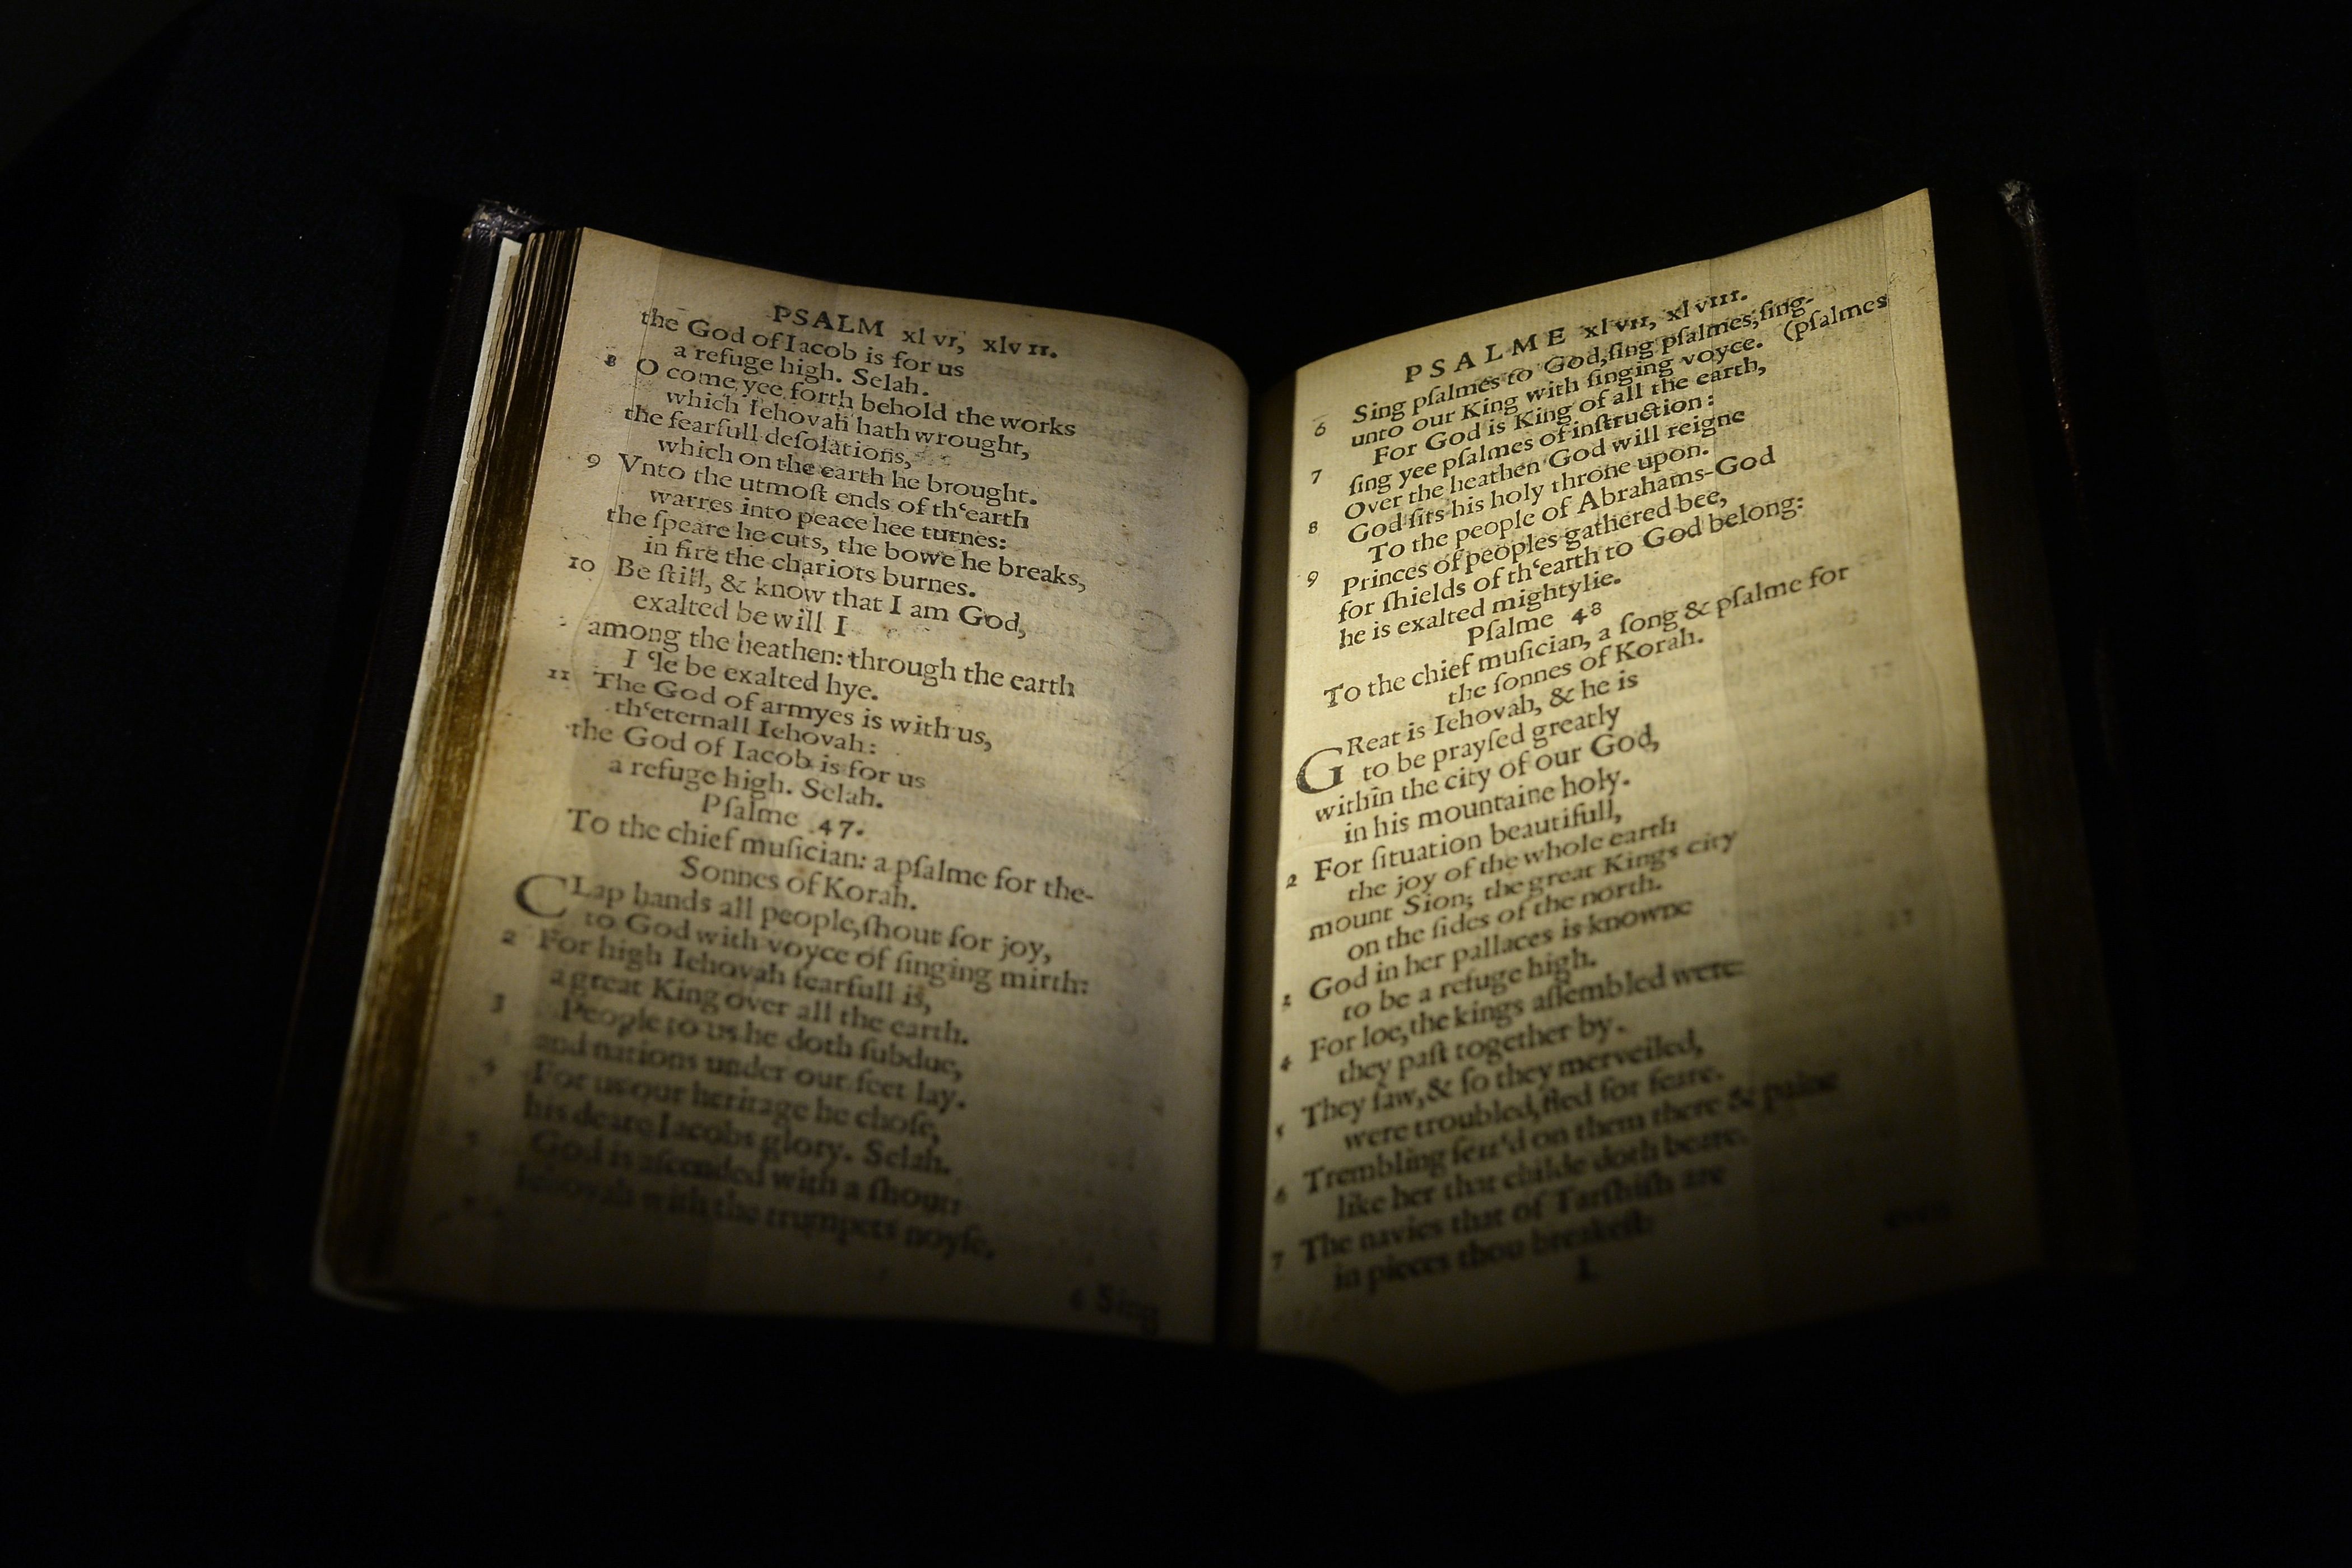 PSALM xlvi, xlvii.
the God of Iacob is for us
a refuge high. Selah.
8 O come yee forth behold the works
which Iehovah hath wrought,
the fearfull desolations,
which on the earth he brought.
9 Vnto the utmoſt ends of th'earth
warres into peace hee turnes:
the ſpeare he cuts, the bowe he breaks,
in fire the chariots burnes.
10 Be ſtill, & know that I am God,
exalted be will I
among the heathen: through the earth
I 'le be exalted hye.
11 The God of armyes is with us,
th'eternall Iehovah:
the God of Iacob is for us
a refuge high. Selah.
Pſalme 47.
To the chief muſician: a pſalme for the-
Sonnes of Korah.
CLap hands all people, ſhout for joy,
to God with voyce of ſinging mirth:
2 For high Iehovah fearfull is,
a great King over all the earth.
3 People to us he doth ſubdue,
and nations under our feet lay.
4 For us our heritage he choſe,
his deare Iacobs glory. Selah.
5 God is aſcended with a ſhout:
Iehovah with the trumpets noyſe.
6 Sing
PSALME xlvii, xlviii.
Sing pſalmes to God, ſing pſalmes, ſing-
(pſalmes
6 unto our King with ſinging voyce.
For God is King of all the earth,
7 ſing yee pſalmes of inſtruction:
Over the heathen God will reigne
8 God ſits his holy throne upon.
To the people of Abrahams-God
9 Princes of peoples gathered bee,
for ſhields of th'earth to God belong:
he is exalted mightylie.
Pſalme 48
To the chief muſician, a ſong & pſalme for
the ſonnes of Korah.
GReat is Iehovah, & he is
to be prayſed greatly
within the city of our God,
in his mountaine holy.
2 For ſituation beautifull,
the joy of the whole earth
mount Sion; the great Kings city
on the ſides of the north.
3 God in her pallaces is knowne
to be a refuge high.
4 For loe, the kings aſſembled were:
they paſt together by.
5 They ſaw, & ſo they merveiled,
were troubled, fled for feare.
6 Trembling ſeiz'd on them there & paine
like her that childe doth beare.
7 The navies that of Tarſhiſh are
in pieces thou breakeſt:
I